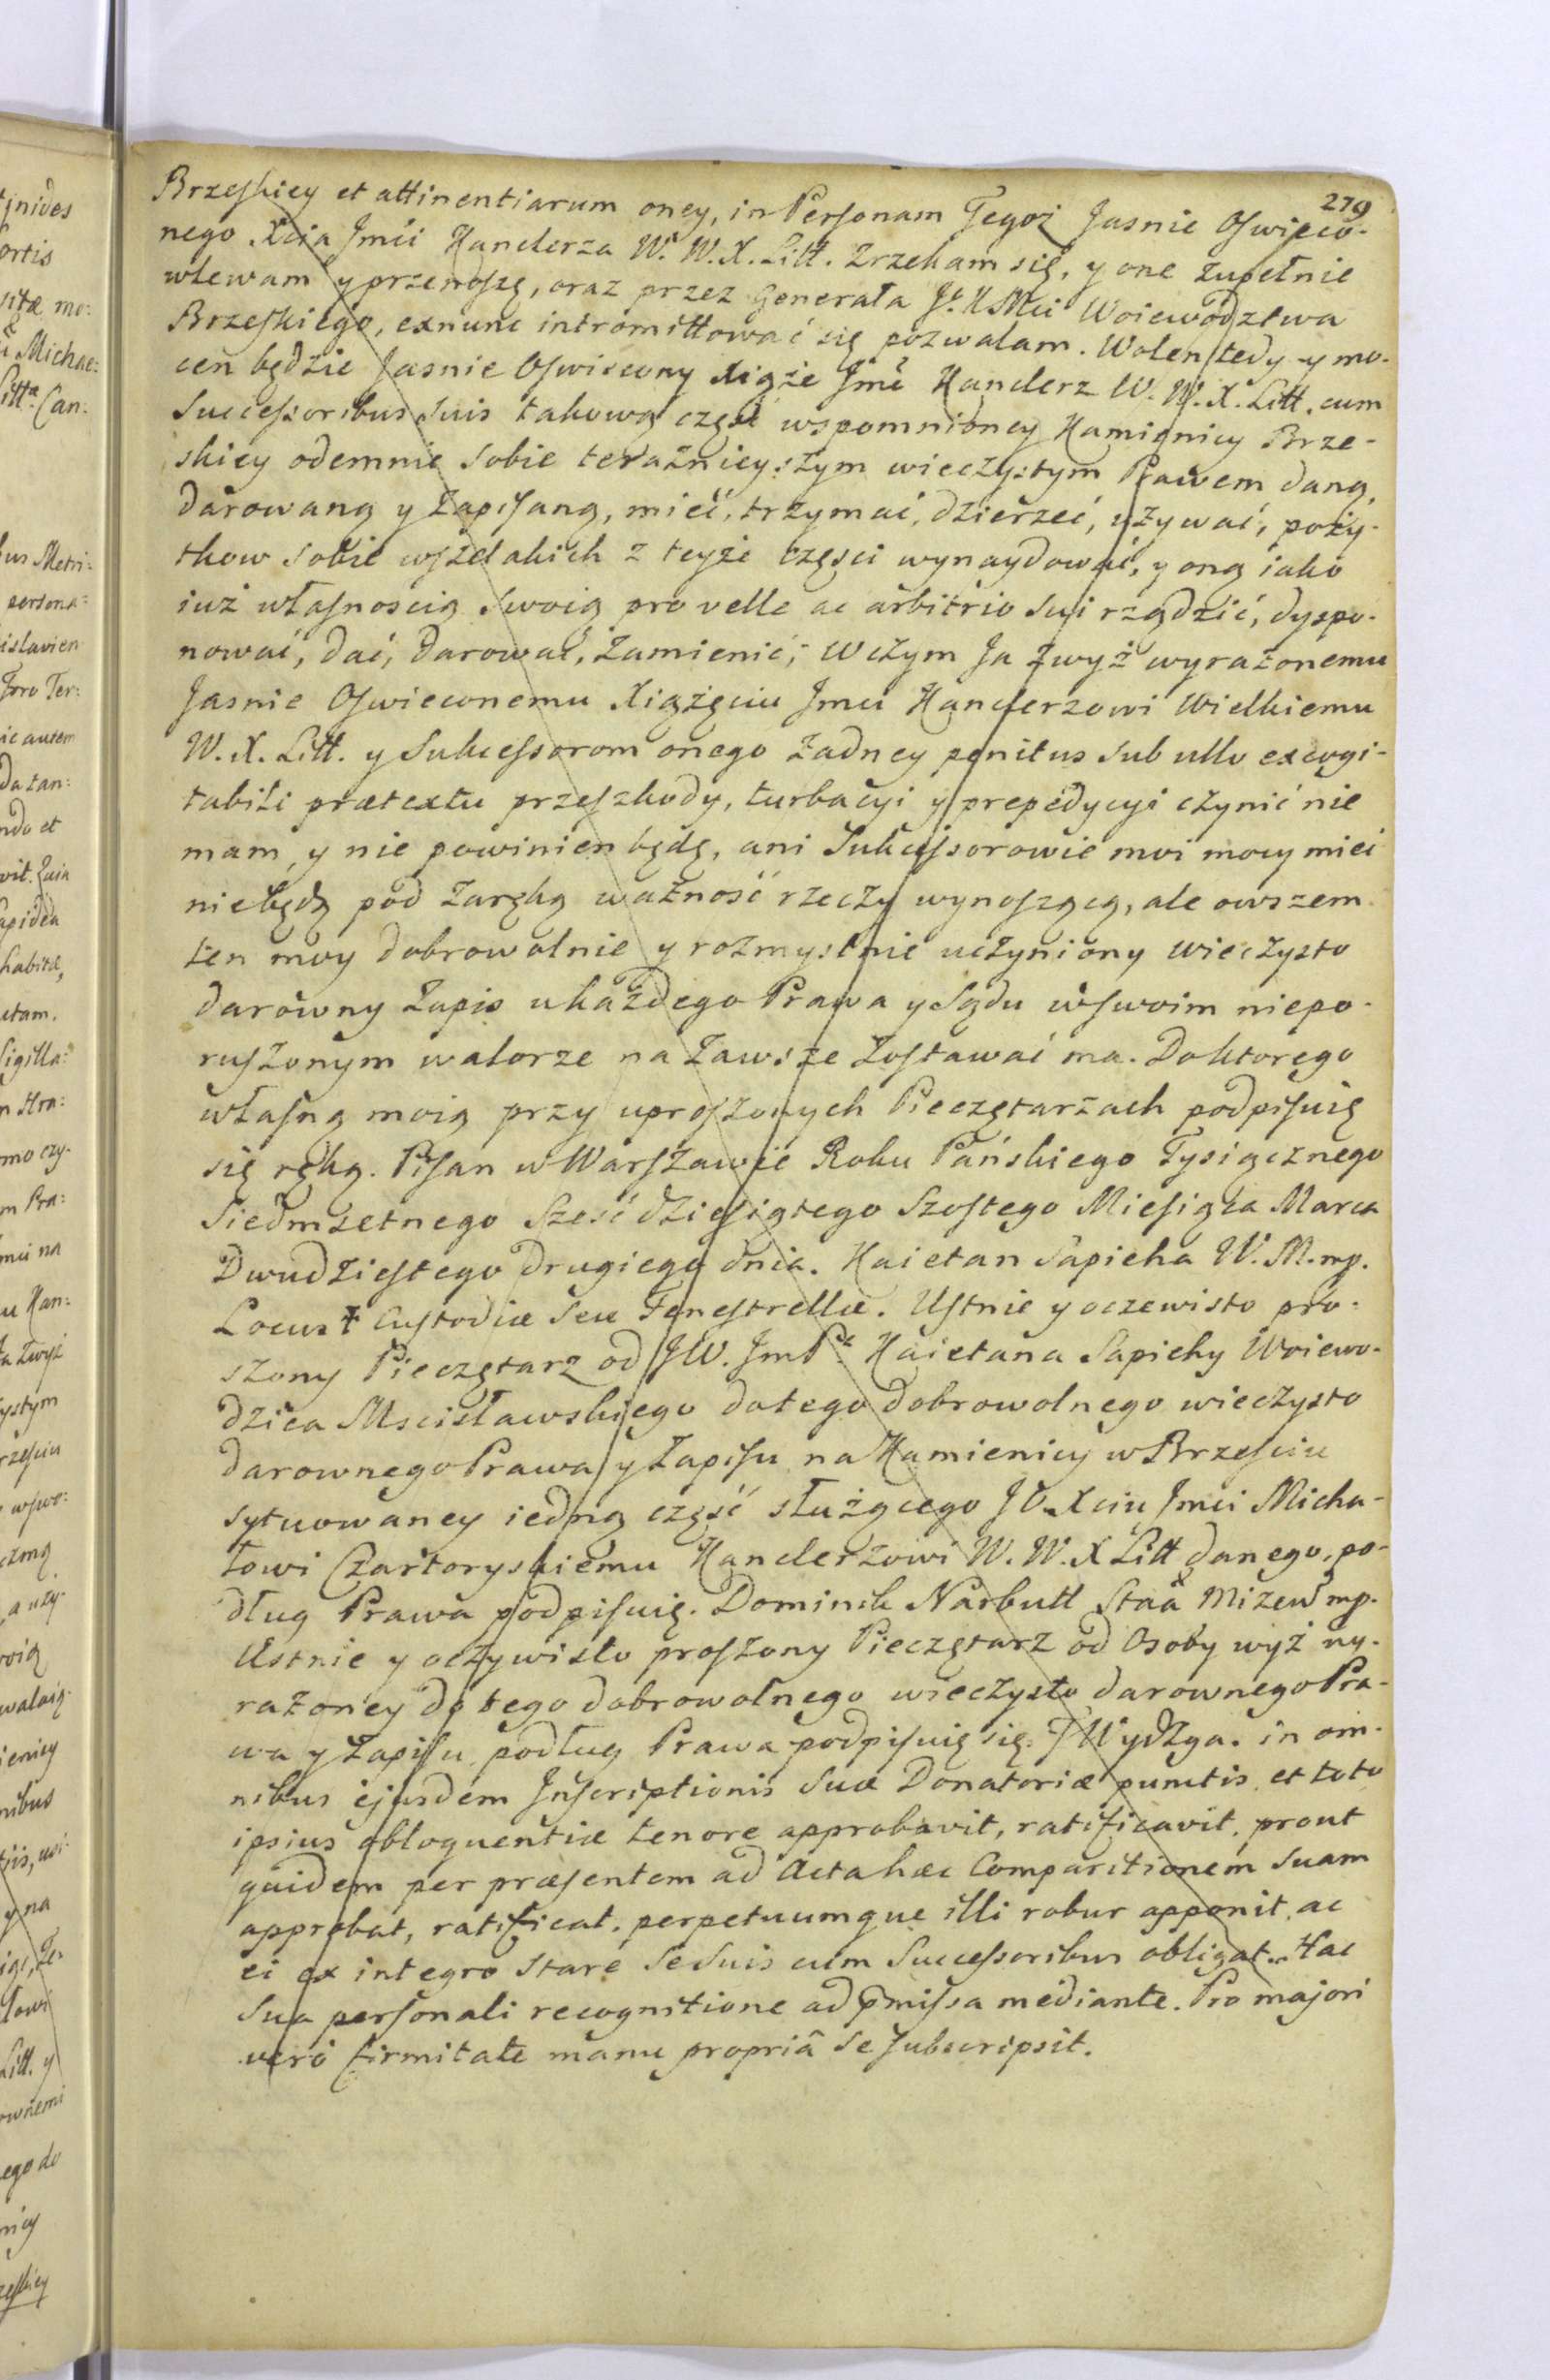 279
Brzeskiey et attinentiarum oney, in Personam Tegoż Jasnie Oswieco-
nego Xcia Jmći Kanclerza W. W. X. Litt. Zrzekam się, y one zupełnie
wlewam y przenoszę, oraz przez Generała J. K Mci Woiewodztwa
Brzeskiego, exnunc intromittować się pozwalam. Wolen tedy y mo-
cen będzie Jasnie Oswiecony Xiąże Jmć Kanclerz W. W. X. Litt. cum
Successoribus Suis takową część wspomnioney Kamienicy Brze-
skiey odemnie sobie teraźnieyszym wieczystym Prawem daną,
darowaną y zapisaną, mieć, trzymać, dzierżeć, używać, pożyt-
kow sobie wszelakich z teyże części wynaydować, y oną iako
iuż własnoscią swoią pro velle ac arbitrio sui rządzić, dyspo-
nować, dać, darować, zamienić; Wczym Ja zwyż wyrażonemu
Jasnie Oswieconemu Xiążęciu Jmci Kanclerzowi Wielkiemu
W. X. Litt. y Sukcessorom onego żadney penitus sub ullo excogi-
tabili prætextu przeszkody, turbacyi y prepedycyi czynić nie
mam, y nie powinien będę, ani Sukcessorowie moi mocy mieć
niebędą pod zaręką ważność rzeczy wynoszącą, ale owszem
ten moy dobrowolnie y rozmyslnie uczyniony wieczysto
darowny Zapis ukażdego Prawa y Sądu wswoim niepo-
ruszonym walorze na zawsze zostawać ma. Doktorego
własną moią przy uproszonych Pieczętarzach podpisuię
się ręką. Pisan w Warszawie Roku Pańskiego Tysiącznego
Siedmsetnego Sześćdziesiątego Szostego Miesiąca Marca
Dwudziestego drugiego dnia. Kaietan Sapieha W. M. mp.
Locus † Custodiæ seu Fenestrellæ. Ustnie y oczewisto pro-
szony Pieczętarz od JW. Jm Pa Kaietana Sapiehy Woiewo-
dzica Mscisławskiego dotego dobrowolnego wieczysto
darownego Prawa y Zapisu na Kamienicy w Brzesciu
sytuowaney iedną część służącego JO. Xciu Jmci Micha-
łowi Czartoryskiemu Kanclerzowi W. W. X Litt danego, po-
dług Prawa podpisuię. Dominik Narbutt Staa Mizew mp.
Ustnie y oczywisto proszony Pieczętarz od Osoby wyż wy-
rażoney do tego dobrowolnego wieczysto darownego Pra-
wa y Zapisu podług Prawa podpisuię się. J Wydzga. in om-
nibus ejusdem Inscriptionis suæ Donatoriæ punctis et toto
ipsius obloquentiæ tenore approbavit, ratificavit, prout
quidem per præsentem ad Acta hæc Comparitionem suam
approbat, ratificat, perpetuumque illi robur apponit, ac
ei ex integro stare se suis cum Successoribus obligat. Hac
sua personali recognitione ad pmissa mediante. Pro majori
vero firmitate manu propriâ se subscripsit.